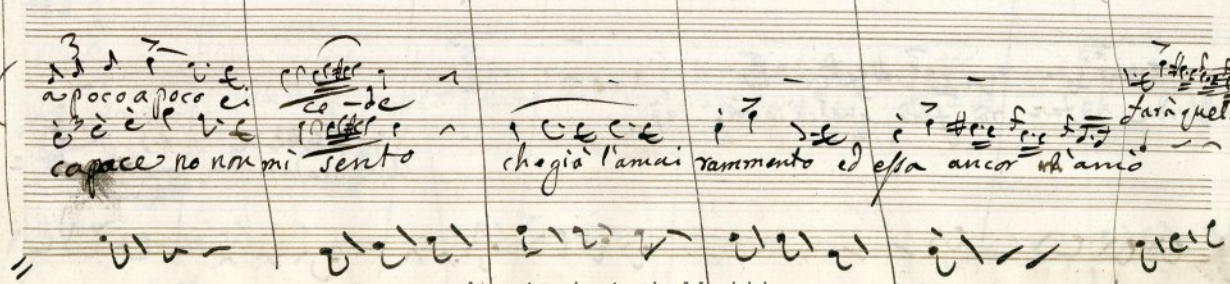 a poco a poco ei ce-de
farà quel
capace no non mi sento che già l'amai rammento ed essa ancor m'amò